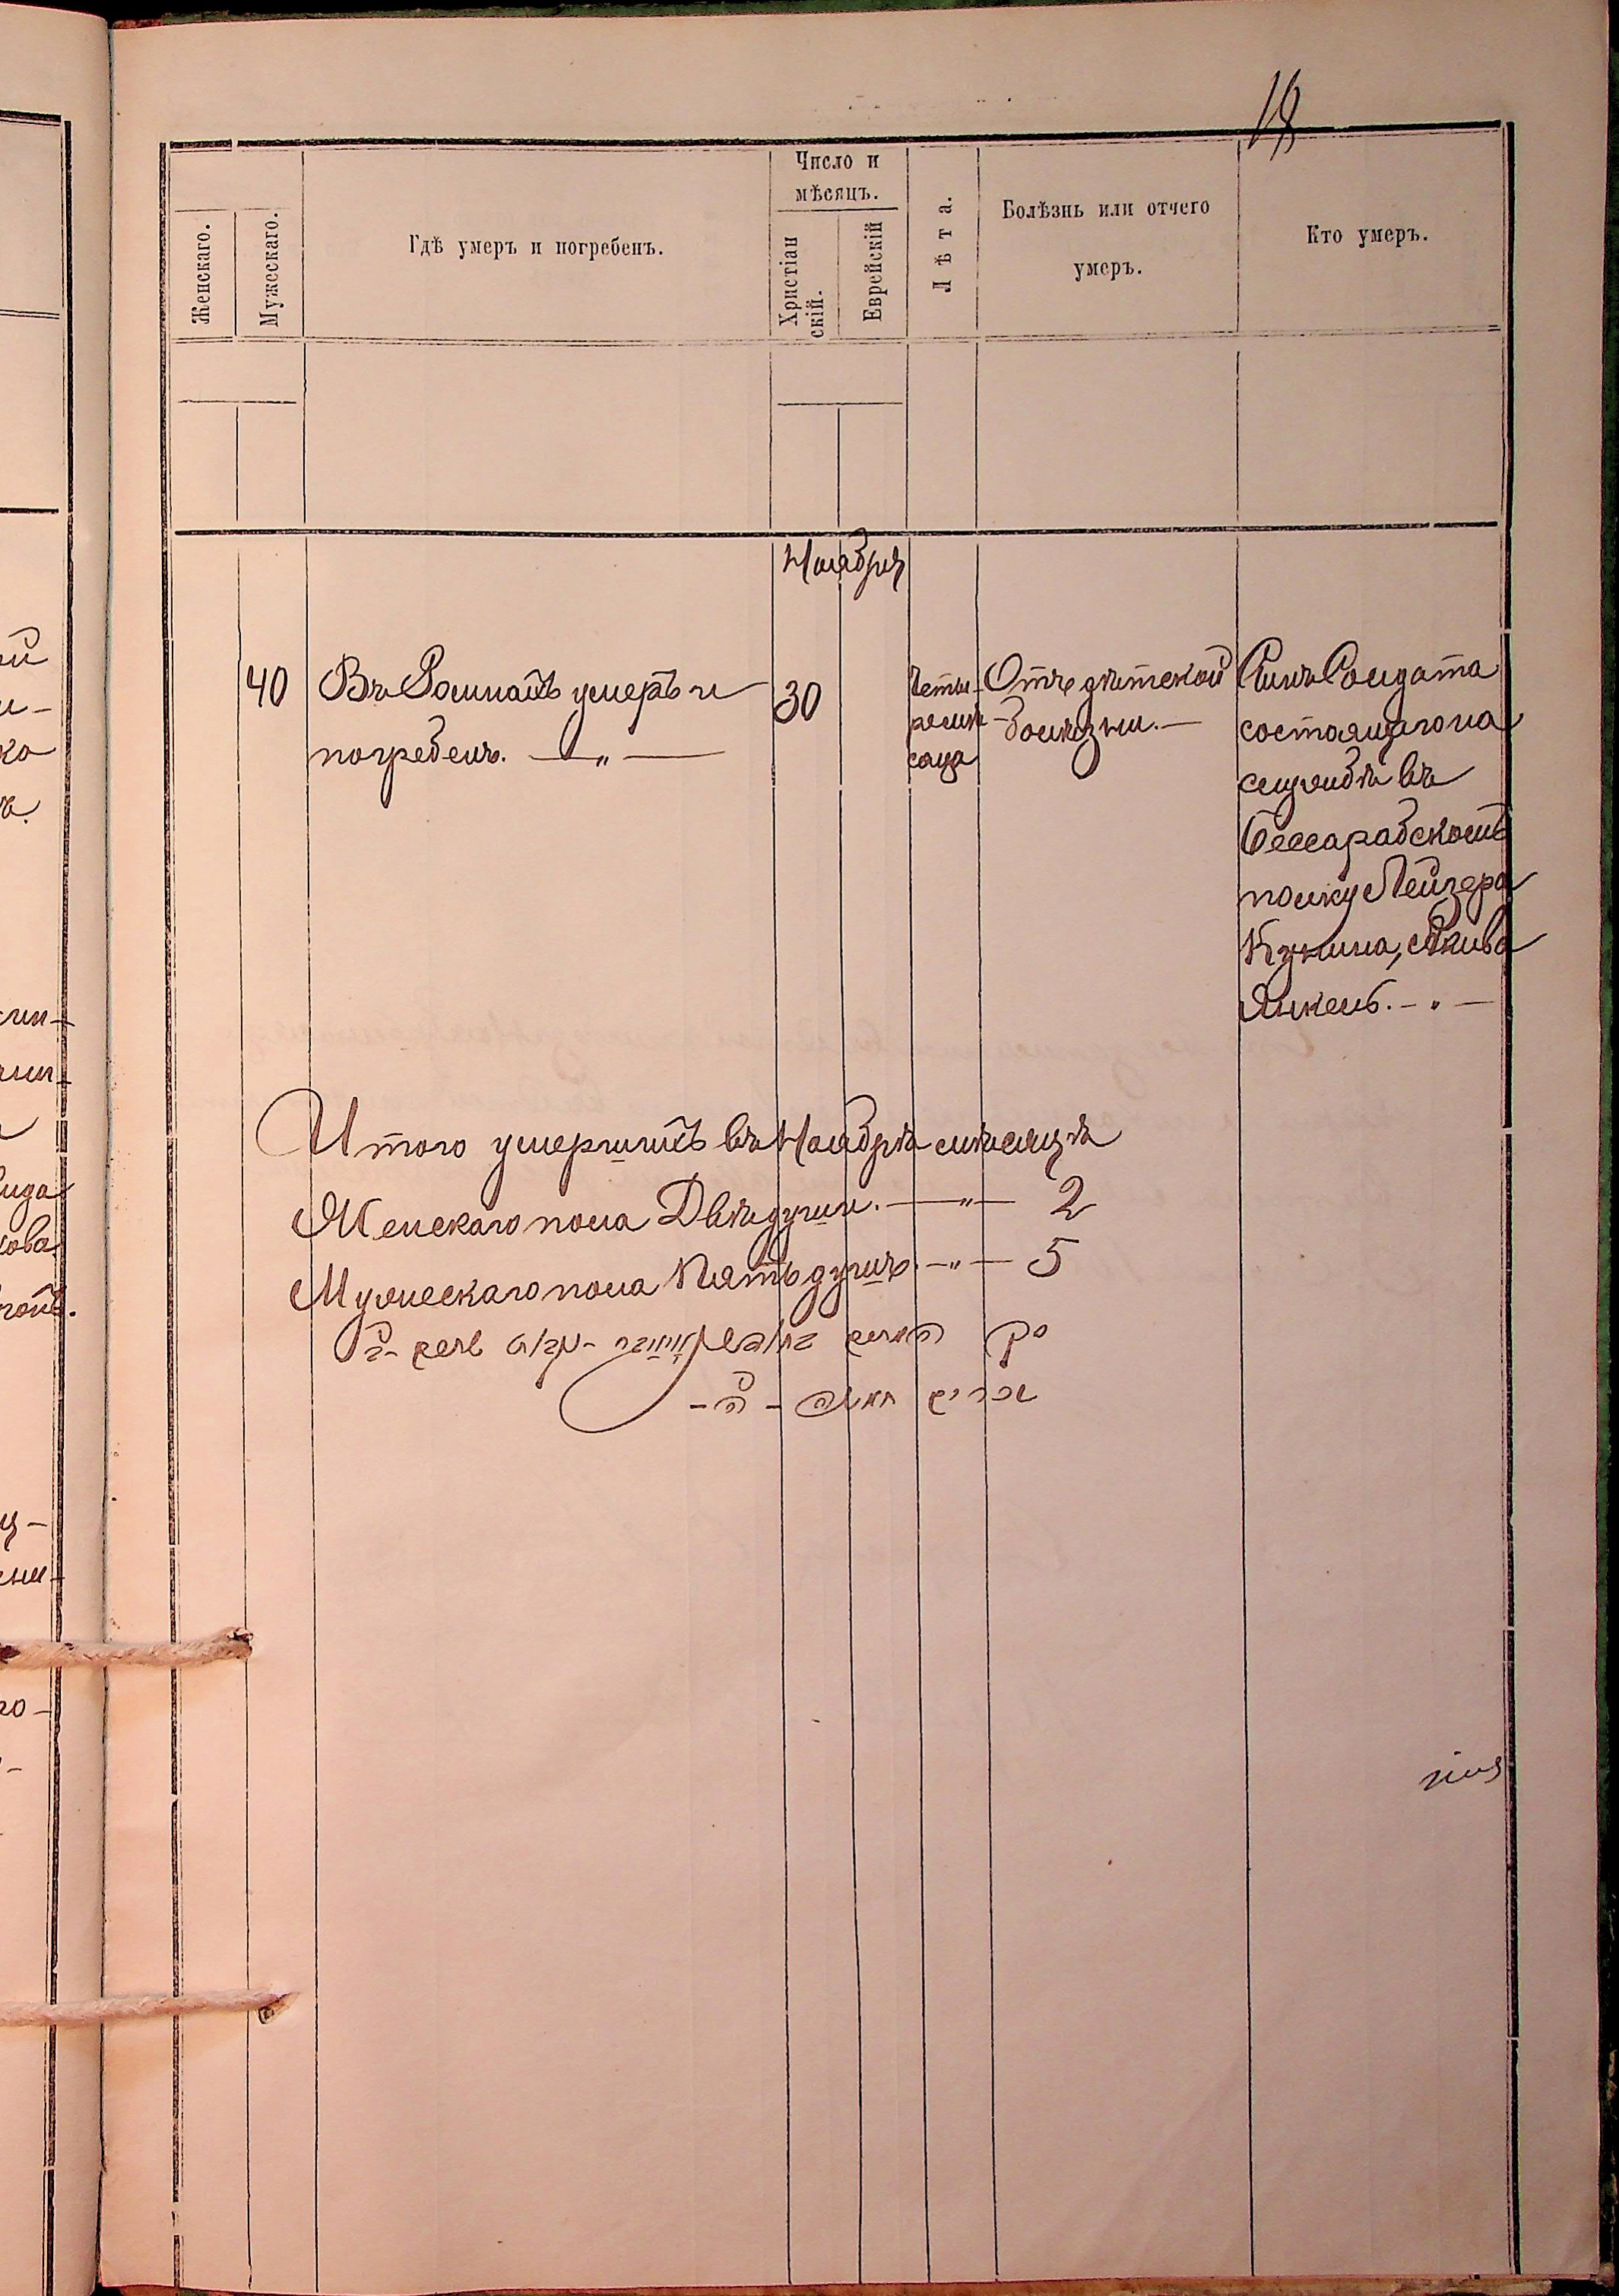 18
Женскаго.
Мужескаго.
Гдѣ умеръ и погребенъ.
Число и
мѣсяцъ.
Христіан
скій.
Еврейскій
Лѣта.
Болѣзнь или отчего
умеръ.
Кто умеръ.
Ноября
40
Въ Ромнахъ умеръ и
погребенъ. — „ —
30
Четы-
ре мѣ-
сяца
Отъ дѣтской
болѣзни. —
Сынъ Солдата
состоящаго на
службѣ въ
Бессарабскомъ
полку Лейзера
Кунина, Акива
Янкель. — „ —
Итого умершихъ въ Ноябрѣ мѣсяцѣ
Женскаго пола Двѣ души. — „ — 2
Мужескаго пола Пять душъ. — „ — 5